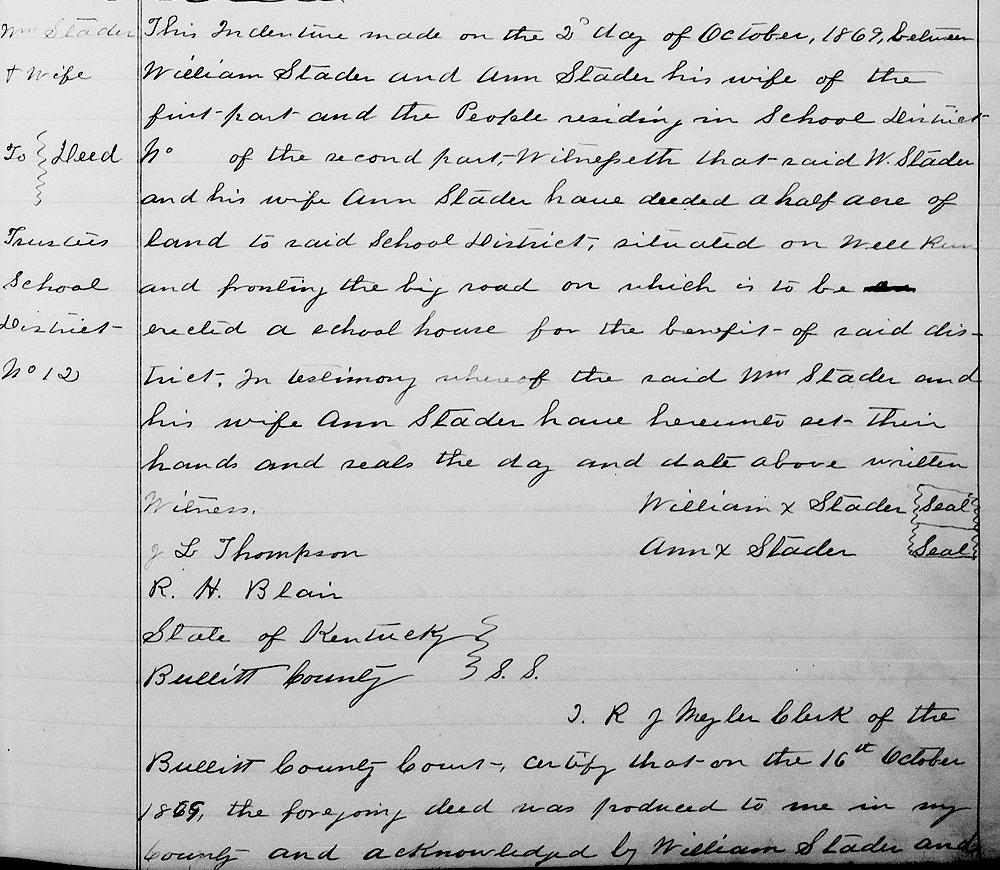 Wm Stader
& Wife
To } Deed
Trustees
School
District
No 12
This Indenture made on the 2d day of October, 1869, between
William Stader and Ann Stader his wife of the
first part and the People residing in School District
No of the second part, Witnesseth that said W. Stader
and his wife Ann Stader have deeded a half acre of
land to said School District, situated on Well Run
and fronting the big road on which is to be
erected a school house for the benefit of said dis-
trict, In testimony whereof the said Wm Stader and
his wife Ann Stader have hereunto set their
hands and seals the day and date above written
Witness. William x Stader {Seal}
J L Thompson Ann x Stader {Seal}
R. H. Blair
State of Kentucky }
Bullitt County } S. S.
I. R J Meyler Clerk of the
Bullitt County Court, certify that on the 16th October
1869, the foregoing deed was produced to me in my
County and acknowledged by William Stader and